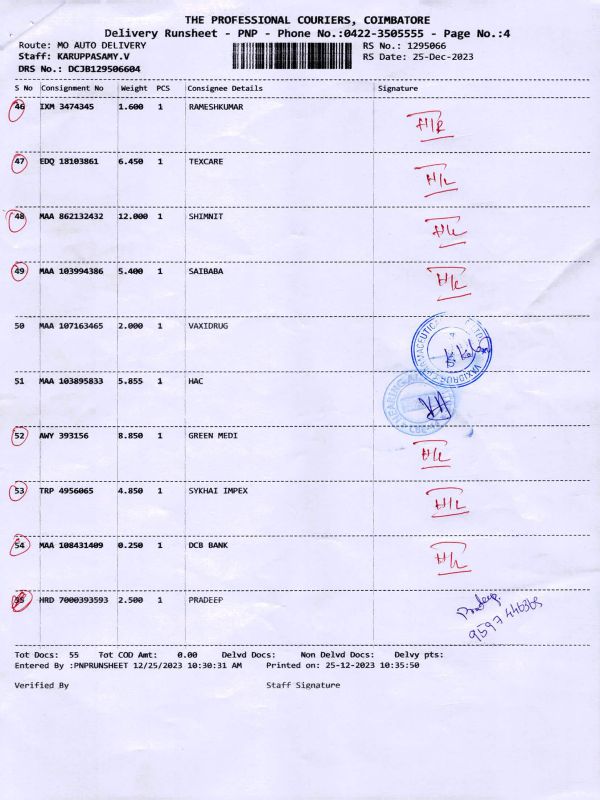 THE PROFESSIONAL COURIERS, COIMBATORE
Delivery Runsheet - PNP - Phone No.:0422-3505555 - Page No.:4
Route: MO AUTO DELIVERY RS No.: 1295066
Staff: KARUPPASAMY.V RS Date: 25-Dec-2023
DRS No.: DCJB129506604
S No Consignment No Weight PCS Consignee Details Signature
46 IXM 3474345 1.600 1 RAMESHKUMAR
47 EDQ 18103861 6.450 1 TEXCARE H/L
48 MAA 862132432 12.000 1 SHIMNIT H/L
49 MAA 103994386 5.400 1 SAIBABA H/L
50 MAA 107163465 2.000 1 VAXIDRUG
51 MAA 103895833 5.855 1 HAC
52 AWY 393156 8.850 1 GREEN MEDI H/L
53 TRP 4956065 4.850 1 SYKHAI IMPEX H/L
54 MAA 108431409 0.250 1 DCB BANK H/L
55 HRD 7000393593 2.500 1 PRADEEP Pradeep
Tot Docs: 55 Tot COD Amt: 0.00 Delvd Docs: Non Delvd Docs: Delvy pts:
Entered By :PNPRUNSHEET 12/25/2023 10:30:31 AM Printed on: 25-12-2023 10:35:50
Verified By Staff Signature